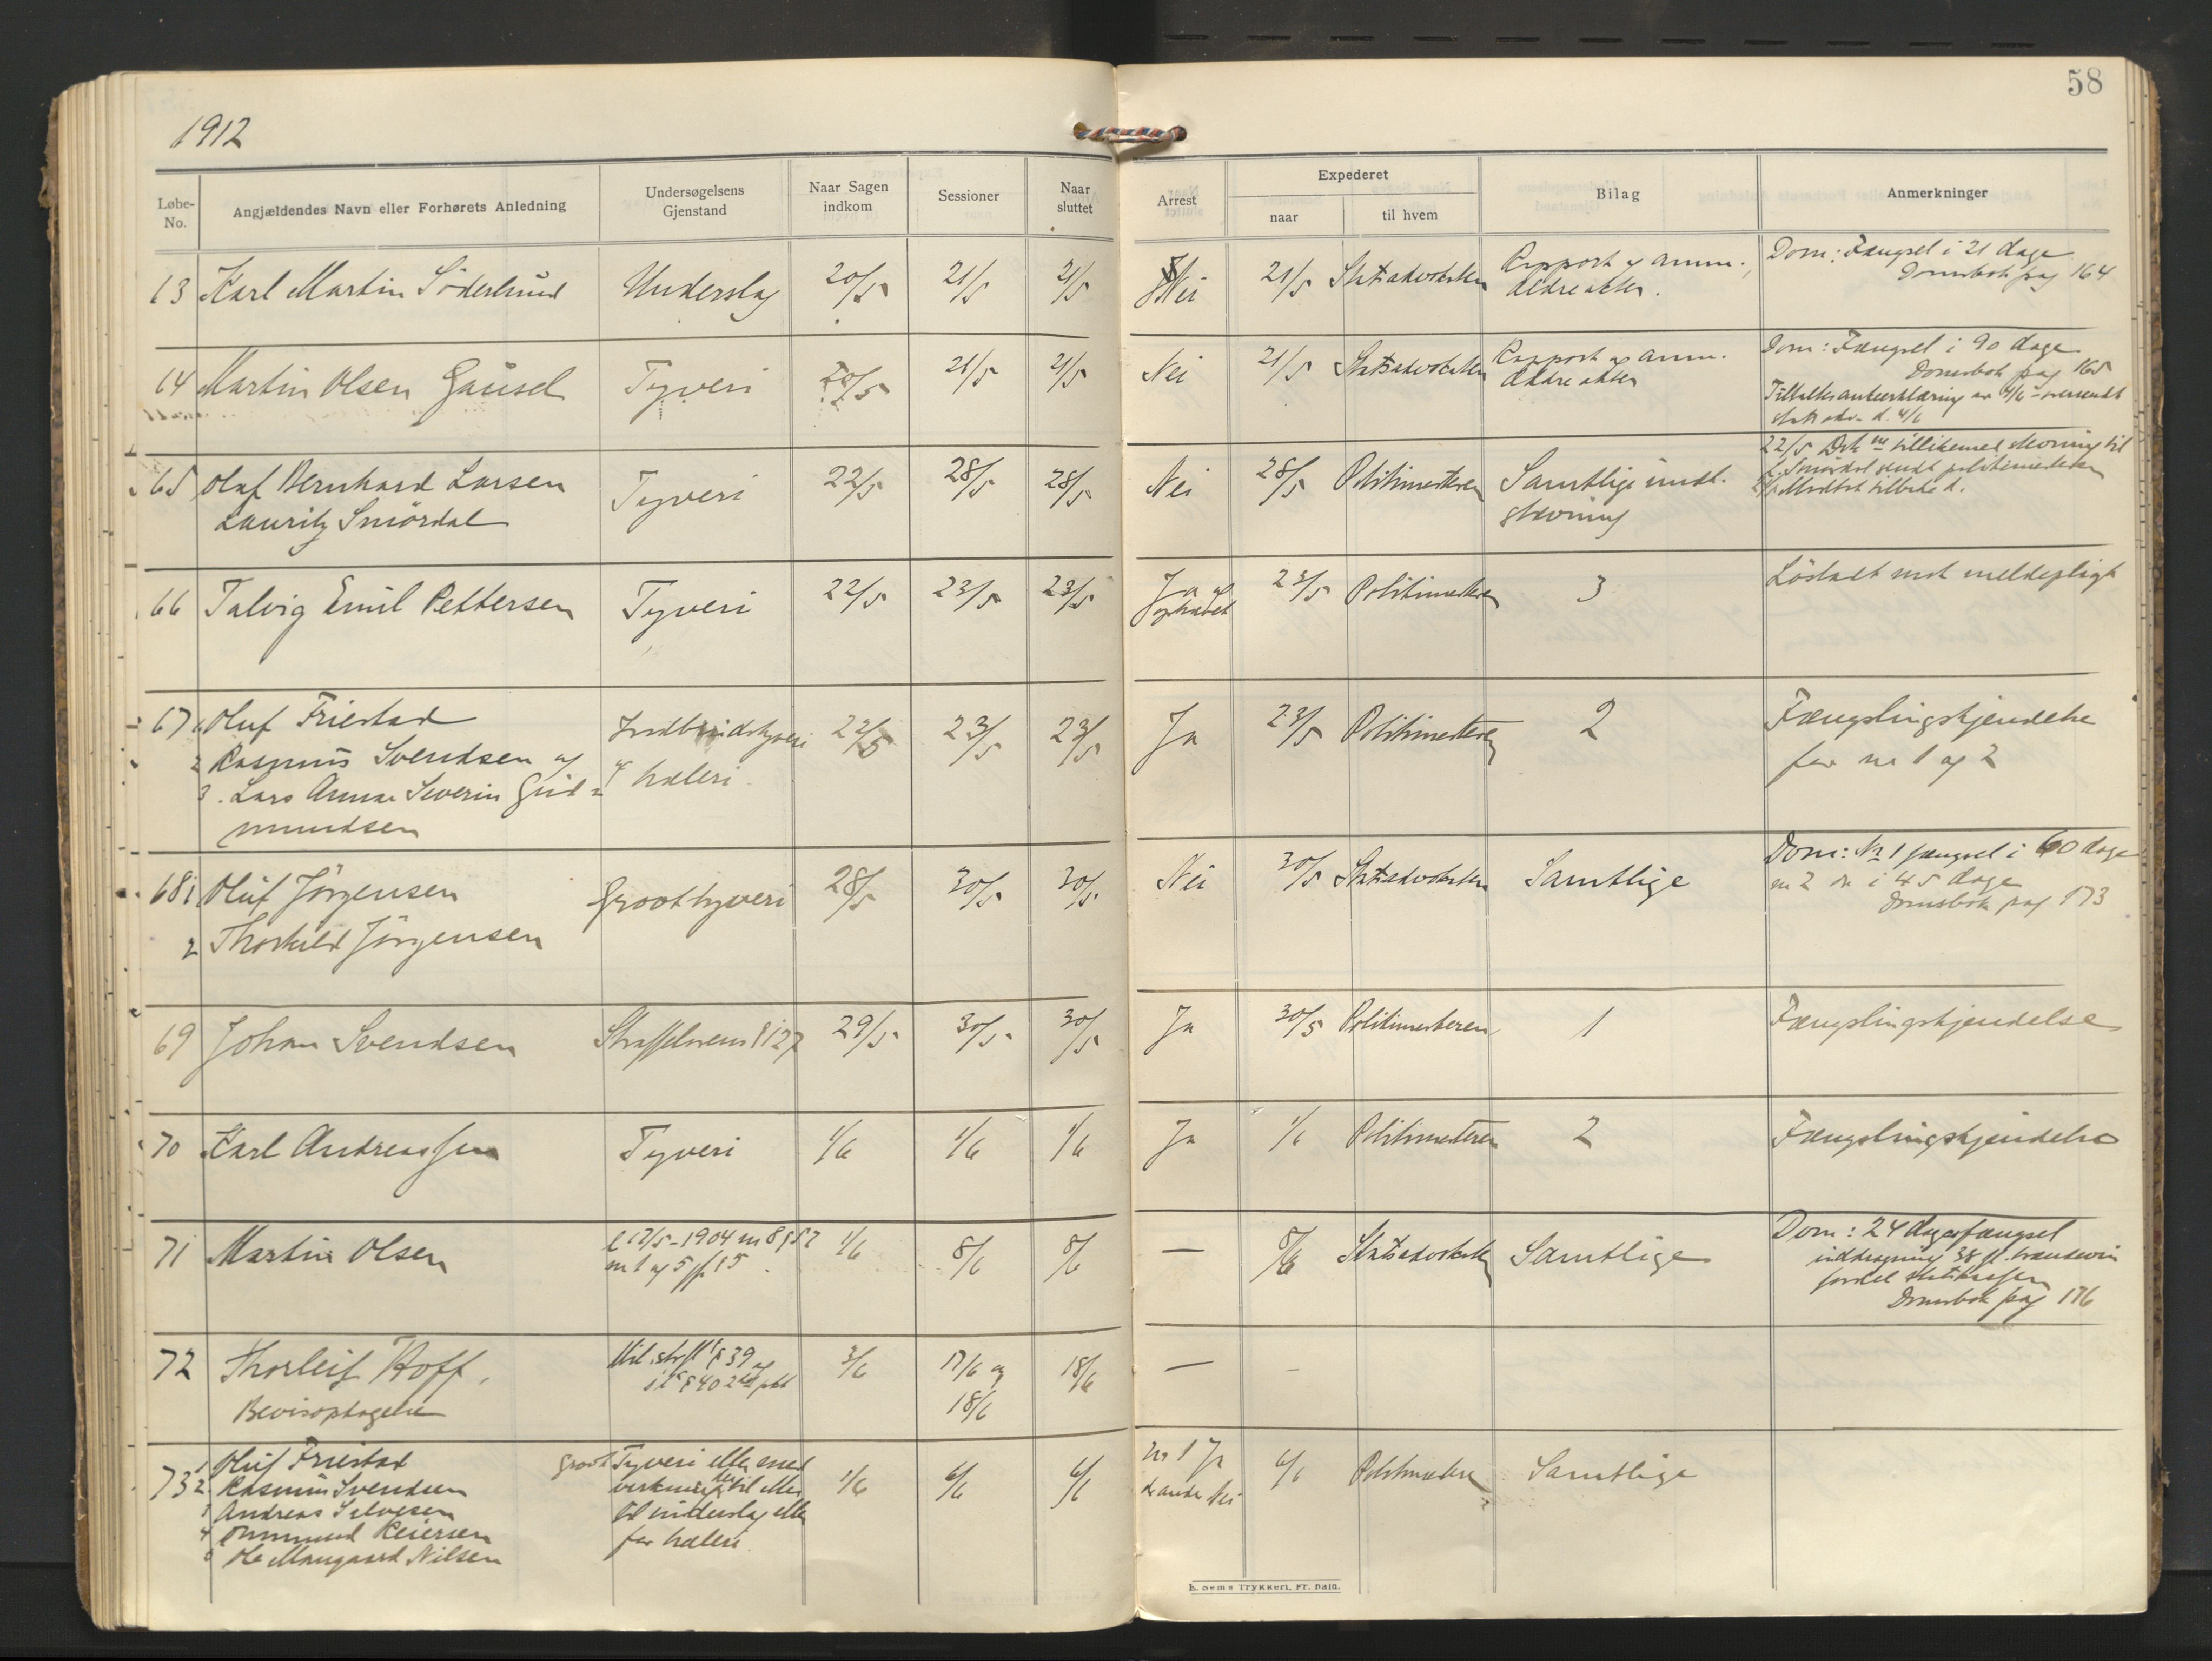 58
1912
Løbe-No.
Angjældendes Navn eller Forhørets Anledning
Undersøgelsens Gjenstand
Naar Sagen indkom
Sessioner
Naar sluttet
Arrest
Expederet
naar
til hvem
Bilag
Anmerkninger
63 Karl Martin Söderlund Underslag 20/5 21/5 21/5 Nei 21/5 Statsadvokaten Rapport og anm.,
ældre akter.
Dom: Fængsel i 21 dage
Domsbok pag 164
64 Martin Olsen Gausel Tyveri 20/5 21/5 21/5 Nei 21/5 Statsadvokaten Rapport og anm.
Ældre akter
Dom: Fængsel i 90 dage
Domsbok pag 165
4/6 oversendt
d. 4/6
65 Olaf Bernhard Larsen Tyveri 22/5 28/5 28/5 Nei 28/5 Politimesteren Samtlige undt.
Lauritz Smördal
stevning
22/5 tillikemed stevning til
L. Smördal sendt politimesteren
tilbake d.
66 Talvig Emil Pettersen Tyveri 22/5 23/5 23/5 Ja og
ophævet
23/5 Politimesteren 3 Löslatt mot meldepligt
67 1 Oluf Friestad Indbrudstyveri 22/5 23/5 23/5 Ja 23/5 Politimesteren 2 Fængslingskjendelse
2 Rasmus Svendsen og
og hæleri
for nr 1 og 2
3. Lars Severin Gud-
mundsen
68 1 Oluf Jörgensen Grovt tyveri 28/5 30/5 30/5 Nei 30/5 Statsadvokaten Samtlige
2 Thorkild Jörgensen
Dom: Nr 1 fængsel i 60 dage
nr 2 i 45 dage
Domsbok pag 173
69 Johan Svendsen Straffelovens § 127 29/5 30/5 30/5 Ja 30/5 Politimesteren 1 Fængslingskjendelse
70 Karl Andreassen Tyveri 1/6 1/6 1/6 Ja 1/6 Politimesteren 2 Fængslingskjendelse
71 Martin Olsen l 17/5-1904 nr 8 § 57
nr 1 og 5
1/6 8/6 8/6 — 8/6 Statsadvokaten Samtlige
Dom: 24 dages fængsel
inddragning 38 fl. brændevin
fordel statskassen
Domsbok pag 176
72 Thorleif Hoff, Mil. strfl § 39 og
§ 40 2det pkt
3/6 17/6 og
18/6
18/6 — –
Bevisoptagelse
73 1 Oluf Friestad
2 Rasmus Svendsen
3 Andreas Silvesen
4 Ommund Reiersen
5 Ole Maugaard Nilsen
grovt Tyveri eller med
virkning dertil eller
til underslag eller
for hæleri
1/6 6/6 6/6 Nr 1 Ja
de andre Nei
6/6 Politimesteren Samtlige
E. Sems Trykkeri, Fr. hald.